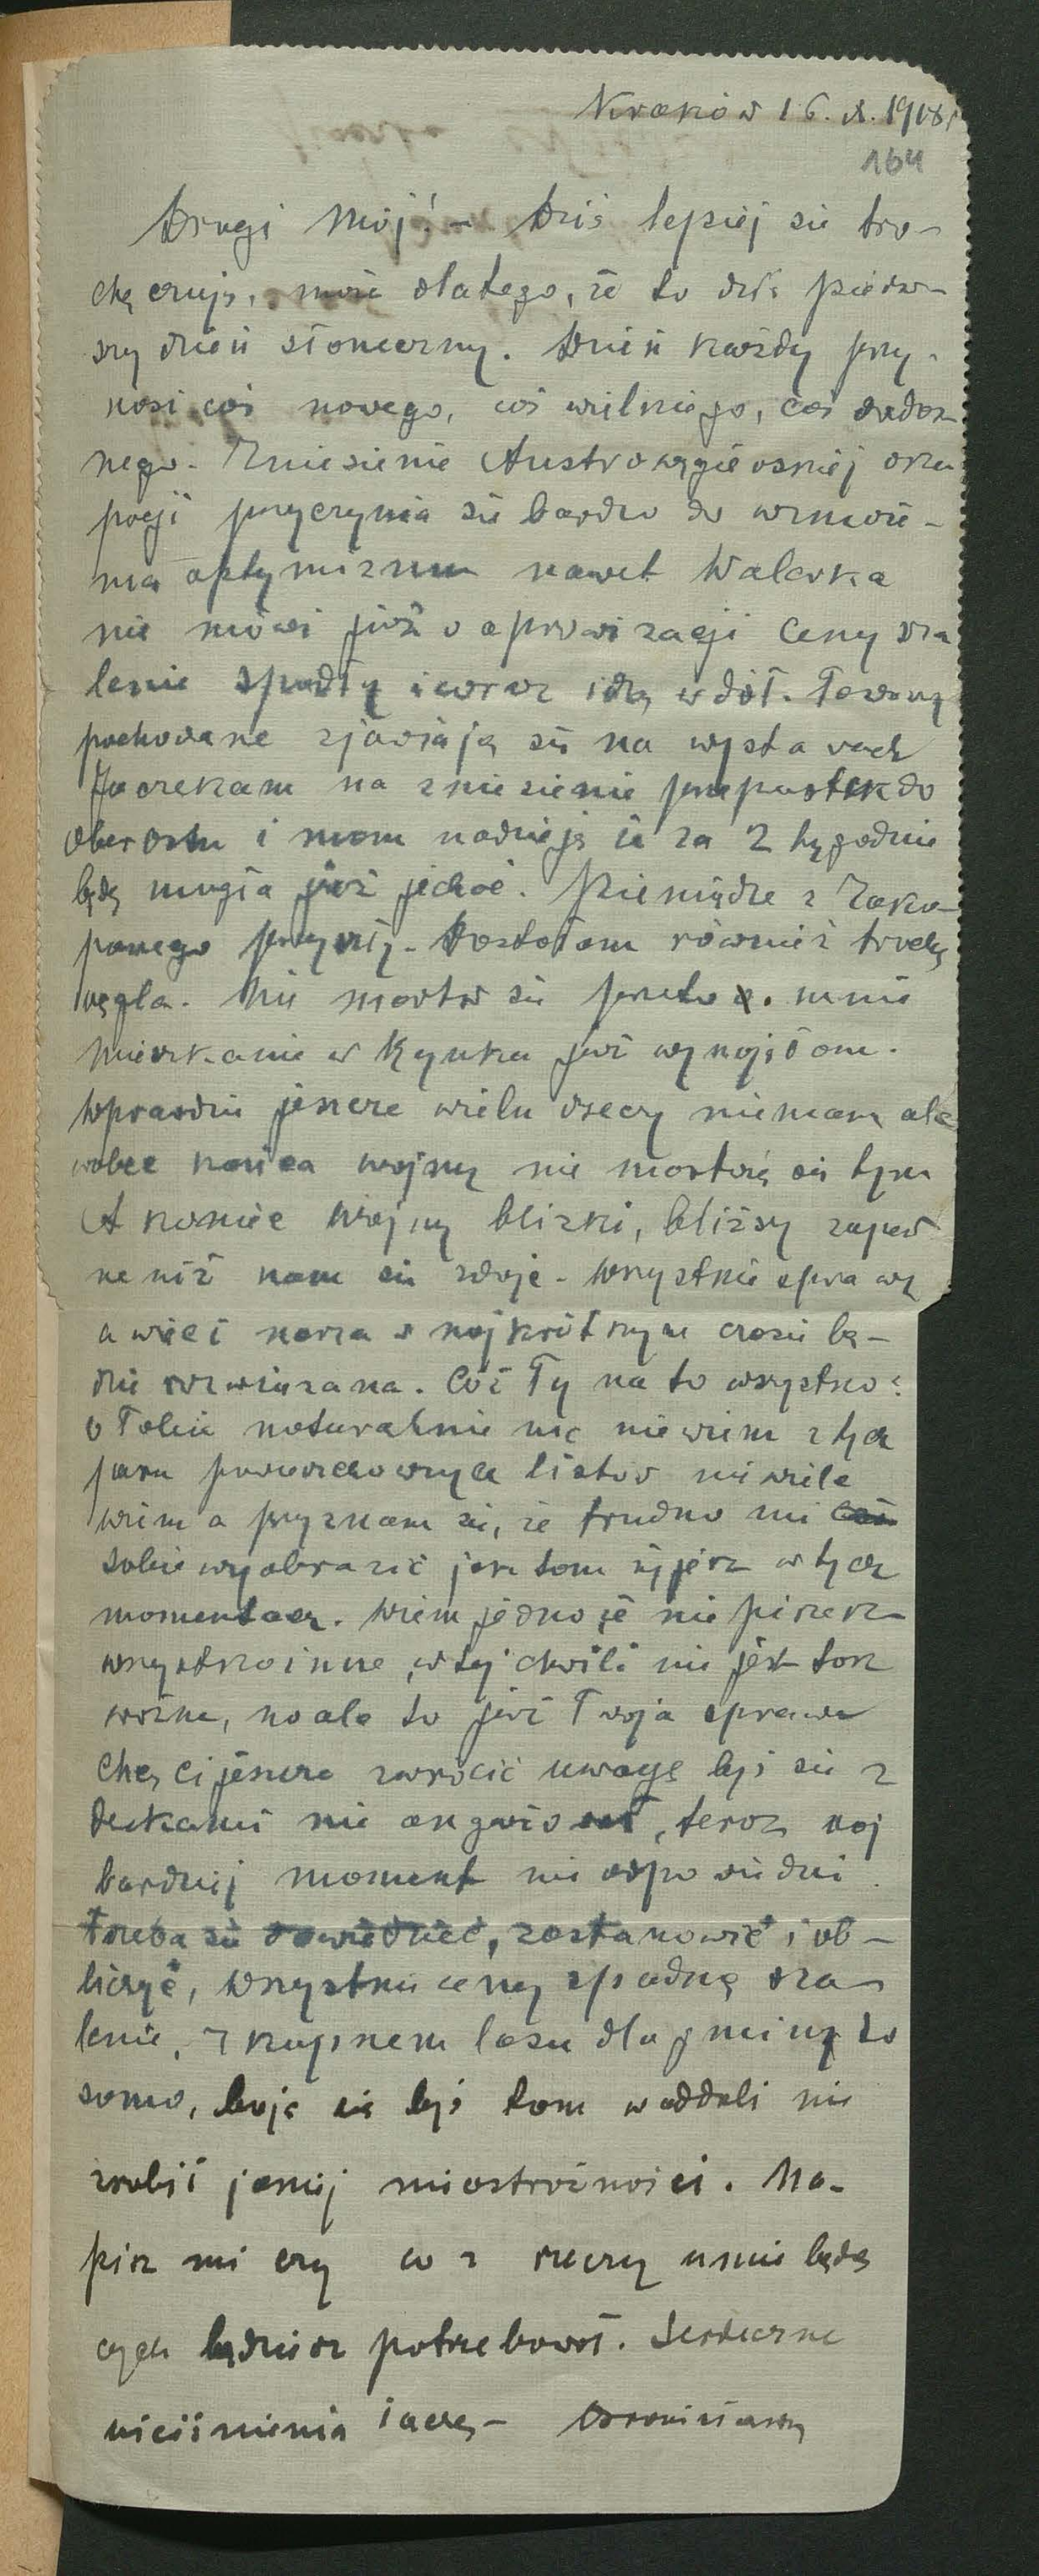 Kraków 16. X. 1918 r
164
Drogi Mój! – Dziś lepiej się tro-
chę czuję, może dlatego, że to dziś pierw-
szy dzień słoneczny. Dzień każdy przy-
nosi coś nowego, coś wielkiego, coś
nego. Zniesienie Austrowęgierskiej oku
pacji przyczynia się bardzo do wzmoże-
nia optymizmu nawet Walerka
nie mówi już o aprowizacji Ceny sza
lenie spadły i wciąż idą w dół. Towary
pochowane zjawiają się na wystawach
Ja czekam na zniesienie przepustek do
Oberostu i mam nadzieję że za 2 tygodnie
będę mogła już jechać. Pieniądze z Zako-
panego przyszły. Dostałam również trochę
węgla. Nie martw się przeto o mnie
Mieszkanie w Rynku już wynajęłam.
Wprawdzie jeszcze wielu rzeczy nie mam ale
wobec końca wojny nie martwię się tym
A koniec wojny blizki, bliższy zapew
ne niż nam się zdaje. Wszystkie sprawy
a więc i nasza w najkrótszym czasie bę-
dzie rozwiązana. Cóż Ty na to wszystko?
O Tobie naturalnie nic nie wiem z tych
paru powierzchownych listów nie wiele
wiem a przyznam się, że trudno mi coś
sobie wyobrazić jak tam żyjesz w tych
momentach. Wiem jedno że nie piszesz
wszystko inne w tej chwili nie jest tak
ważne, no ale to już Twoja sprawa
Chcę Ci jeszcze zwrócić uwagę byś się z
deskami nie angażował, teraz naj
bardziej moment nie odpowiedni
trzeba się dowiedzieć, zastanowić i ob-
liczyć, wszystkie ceny spadną sza-
lenie, z kupnem lasu dla gminy to
samo, boję się byś tam w oddali nie
zrobił jakiej nieostrożności. Na-
pisz mi czy co z rzeczy u mnie będą
cych będziesz potrzebował. Serdeczne
uściśnienia